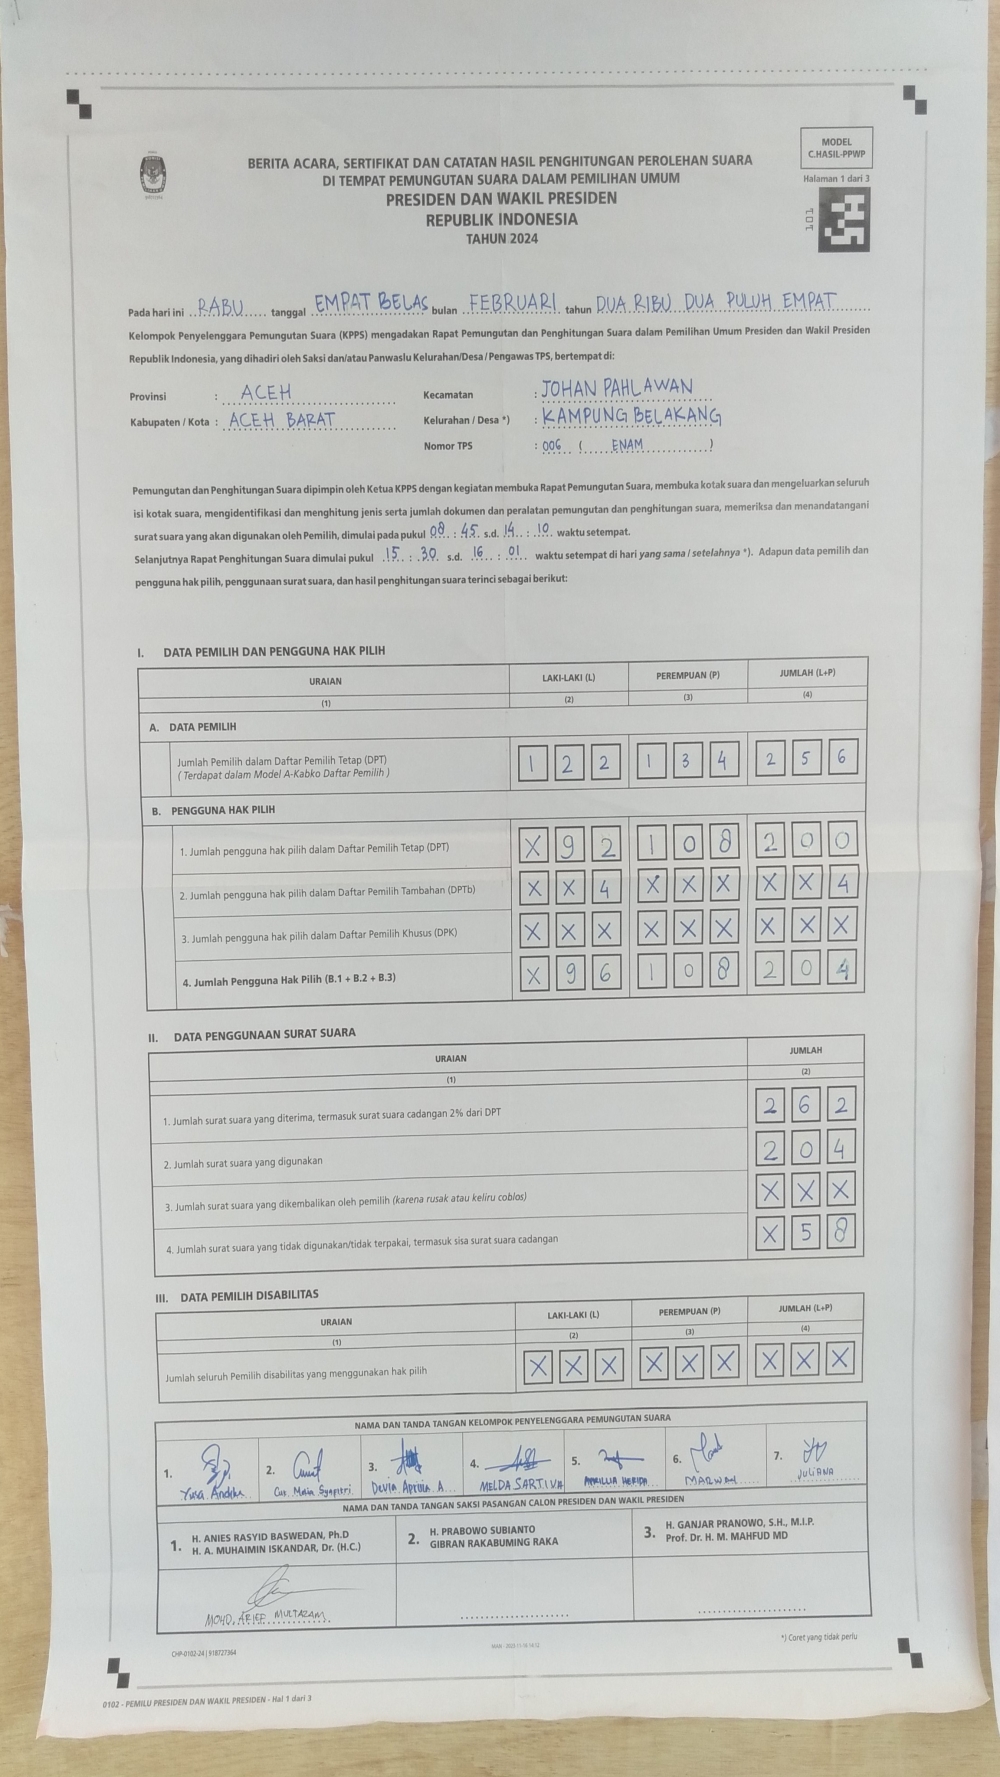 MODEL
C.HASIL-PPWP
Halaman 1 dari 3
101
BERITA ACARA, SERTIFIKAT DAN CATATAN HASIL PENGHITUNGAN PEROLEHAN SUARA
DI TEMPAT PEMUNGUTAN SUARA DALAM PEMILIHAN UMUM
PRESIDEN DAN WAKIL PRESIDEN
REPUBLIK INDONESIA
TAHUN 2024
Pada hari ini RABU tanggal EMPAT BELAS bulan FEBRUARI tahun DUA RIBU DUA PULUH EMPAT
Kelompok Penyelenggara Pemungutan Suara (KPPS) mengadakan Rapat Pemungutan dan Penghitungan Suara dalam Pemilihan Umum Presiden dan Wakil Presiden
Republik Indonesia, yang dihadiri oleh Saksi dan/atau Panwaslu Kelurahan/Desa / Pengawas TPS, bertempat di:
Provinsi : ACEH Kecamatan : JOHAN PAHLAWAN
Kabupaten / Kota : ACEH BARAT Kelurahan / Desa *) : KAMPUNG BELAKANG
Nomor TPS : 006 ( ENAM )
Pemungutan dan Penghitungan Suara dipimpin oleh Ketua KPPS dengan kegiatan membuka Rapat Pemungutan Suara, membuka kotak suara dan mengeluarkan seluruh
isi kotak suara, mengidentifikasi dan menghitung jenis serta jumlah dokumen dan peralatan pemungutan dan penghitungan suara, memeriksa dan menandatangani
surat suara yang akan digunakan oleh Pemilih, dimulai pada pukul 08 : 45 s.d. 14 : 10 waktu setempat.
Selanjutnya Rapat Penghitungan Suara dimulai pukul 15 : 30 s.d. 16 : 01 waktu setempat di hari yang sama / setelahnya *). Adapun data pemilih dan
pengguna hak pilih, penggunaan surat suara, dan hasil penghitungan suara terinci sebagai berikut:
I. DATA PEMILIH DAN PENGGUNA HAK PILIH
URAIAN LAKI-LAKI (L) PEREMPUAN (P) JUMLAH (L+P)
(1) (2) (3) (4)
A. DATA PEMILIH
Jumlah Pemilih dalam Daftar Pemilih Tetap (DPT) 1 2 2 1 3 4 2 5 6
( Terdapat dalam Model A-Kabko Daftar Pemilih )
B. PENGGUNA HAK PILIH
1. Jumlah pengguna hak pilih dalam Daftar Pemilih Tetap (DPT) X 9 2 1 0 8 2 0 0
2. Jumlah pengguna hak pilih dalam Daftar Pemilih Tambahan (DPTb) X X 4 X X X X X 4
3. Jumlah pengguna hak pilih dalam Daftar Pemilih Khusus (DPK) X X X X X X X X X
4. Jumlah Pengguna Hak Pilih (B.1 + B.2 + B.3) X 9 6 1 0 8 2 0 4
II. DATA PENGGUNAAN SURAT SUARA
URAIAN JUMLAH
(1) (2)
1. Jumlah surat suara yang diterima, termasuk surat suara cadangan 2% dari DPT 2 6 2
2. Jumlah surat suara yang digunakan 2 0 4
3. Jumlah surat suara yang dikembalikan oleh pemilih (karena rusak atau keliru coblos) X X X
4. Jumlah surat suara yang tidak digunakan/tidak terpakai, termasuk sisa surat suara cadangan X 5 8
III. DATA PEMILIH DISABILITAS
URAIAN LAKI-LAKI (L) PEREMPUAN (P) JUMLAH (L+P)
(1) (2) (3) (4)
Jumlah seluruh Pemilih disabilitas yang menggunakan hak pilih X X X X X X X X X
NAMA DAN TANDA TANGAN KELOMPOK PENYELENGGARA PEMUNGUTAN SUARA
1. 2. 3. 4. 5. 6. 7.
Yusa Andika Cut Devia Aprilia A. MELDA SARTIVA MARWAN JULIANA
NAMA DAN TANDA TANGAN SAKSI PASANGAN CALON PRESIDEN DAN WAKIL PRESIDEN
1. H. ANIES RASYID BASWEDAN, Ph.D
H. A. MUHAIMIN ISKANDAR, Dr. (H.C.)
2. H. PRABOWO SUBIANTO
GIBRAN RAKABUMING RAKA
3. H. GANJAR PRANOWO, S.H., M.I.P.
Prof. Dr. H. M. MAHFUD MD
MOHD. ARIEF MULTAZAM
*) Coret yang tidak perlu
CHP-0102-24 | 918727364
0102 - PEMILU PRESIDEN DAN WAKIL PRESIDEN - Hal 1 dari 3